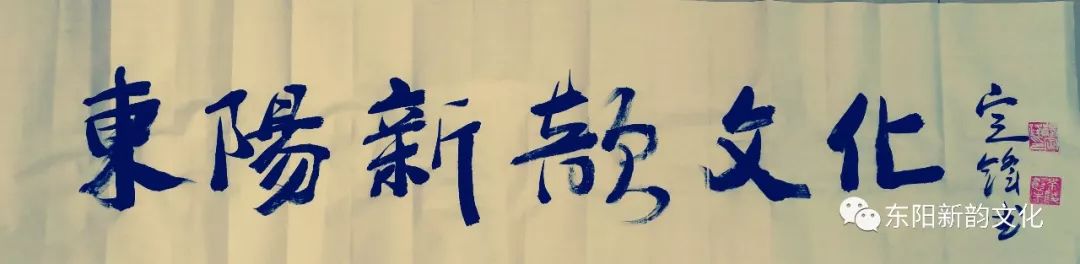 東陽新韻文化
定鋒书
东阳新韵文化